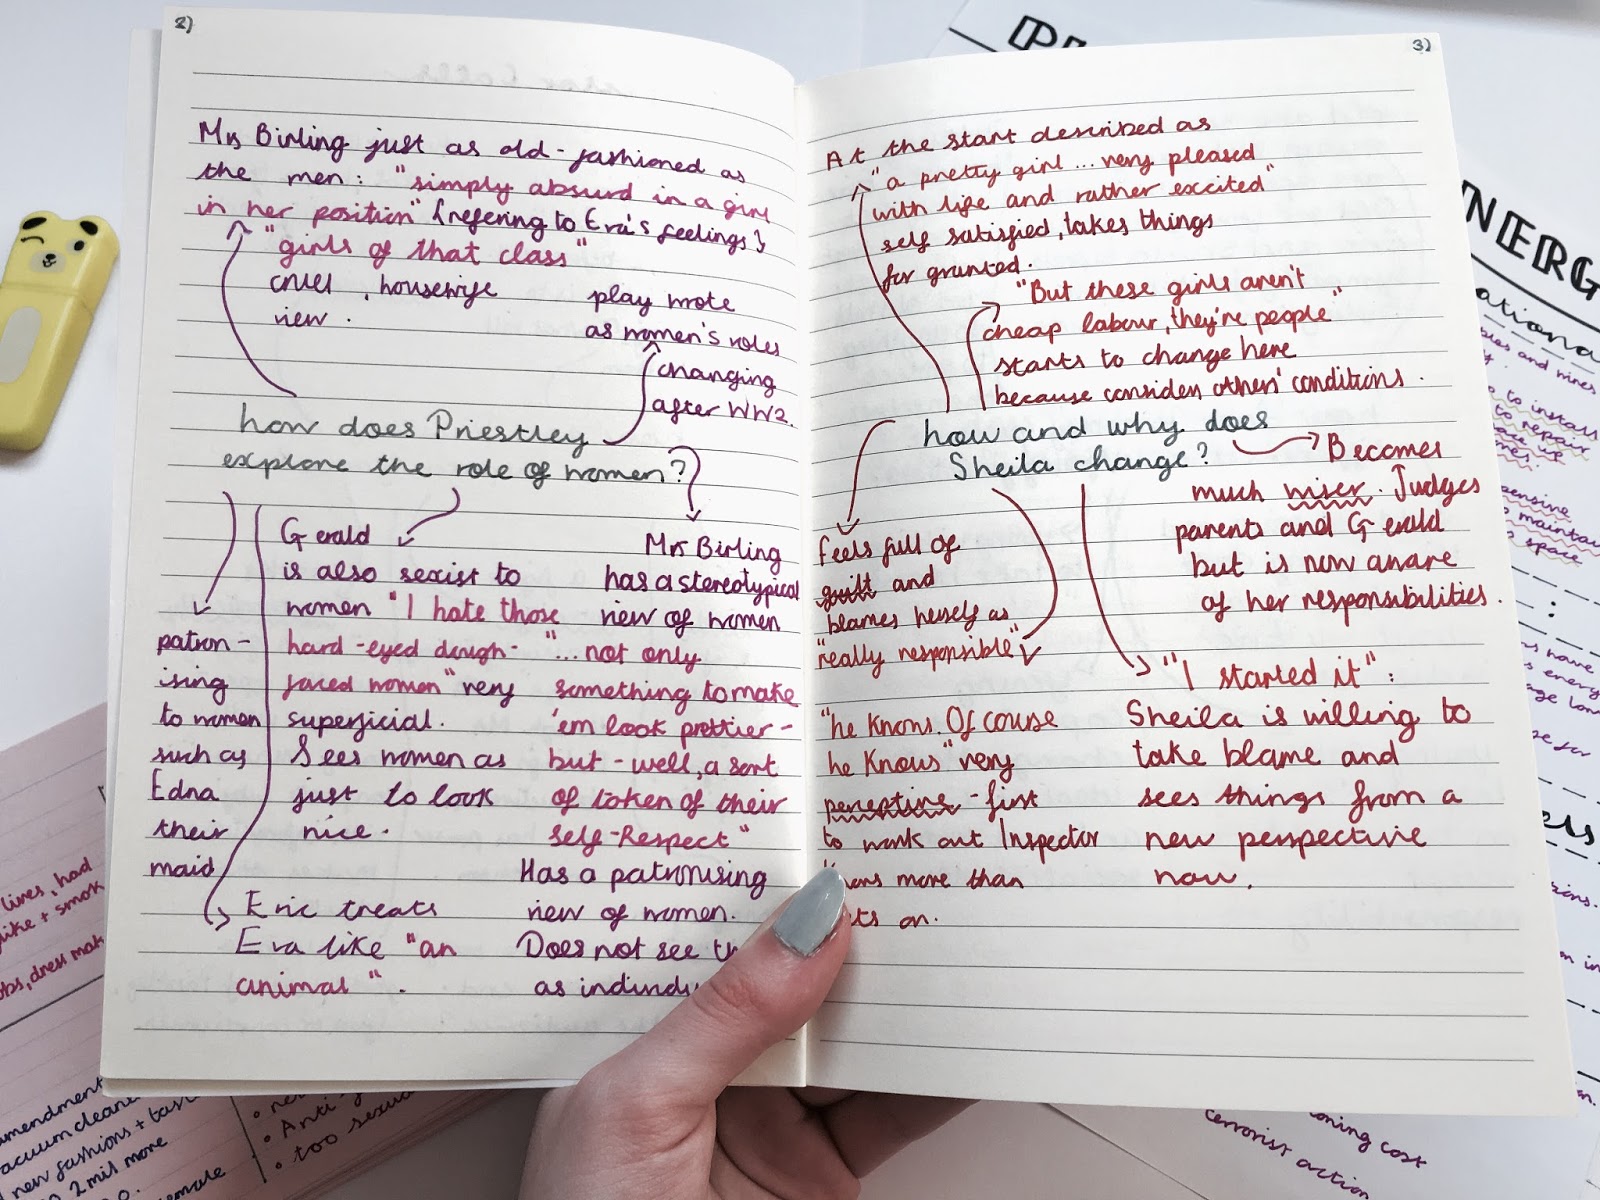 2)
Mrs Birling just as old-fashioned as
the men: "simply absurd in a girl
in her position" {refering to Eva's feelings}
"girls of that class"
cruel, housewife
view.
play wrote
as women's roles
changing
after WW2.
how does Priestley
explore the role of women?
patron-
ising
to women
such as
Edna
their
maid
Gerald
is also sexist to
women "I hate those
hard-eyed dough-
faced women" very
superficial.
Sees women as
just to look
nice.
Eric treats
Eva like "an
animal".
Mrs Birling
has a stereotypical
view of women
"...not only
something to make
'em look prettier-
but - well, a sort
of token of their
self-Respect"
Has a patronising
view of women.
Does not see
as
3)
At the start described as
"a pretty girl ... very pleased
with life and rather excited"
self satisfied, takes things
for granted.
"But these girls aren't
cheap labour, they're people"
starts to change here
because considers others' conditions.
how and why does
Sheila change?
Becomes
much wiser. Judges
parents and Gerald
but is now aware
of her responsibilities.
feels full of
guilt and
blames herself as
"really responsible"
"he knows. Of course
he knows" very
perceptive - first
to work out Inspector
more than
on.
"I started it":
Sheila is willing to
take blame and
sees things from a
new perspective
now.
NERG
and mines
to install
to repair
up
maintain
space
have
energy
for
in
cost
terrorist action
lives, had
like + smok
dress mak
mendment
vacuum cleane
new fashions + tast
2 mil more
Anti-
too sexua